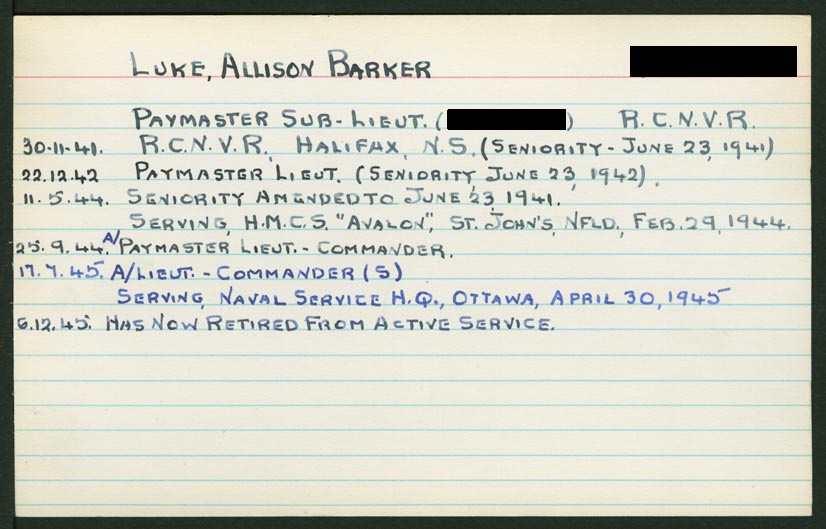 LUKE, ALLISON BARKER
PAYMASTER SUB-LIEUT. ( ) R.C.N.V.R.
30-11-41. R.C.N.V.R. HALIFAX, N.S. (SENIORITY - JUNE 23, 1941)
22.12.42 PAYMASTER LIEUT. (SENIORITY JUNE 23, 1942).
11.5.44. SENIORITY AMENDED TO JUNE 23, 1941.
SERVING, H.M.C.S. "AVALON", ST. JOHN'S, NFLD., FEB. 29, 1944.
25.9.44. A/PAYMASTER LIEUT. - COMMANDER.
17.7.45. A/LIEUT. - COMMANDER (S)
SERVING, NAVAL SERVICE H.Q., OTTAWA, APRIL 30, 1945
6.12.45. HAS NOW RETIRED FROM ACTIVE SERVICE.